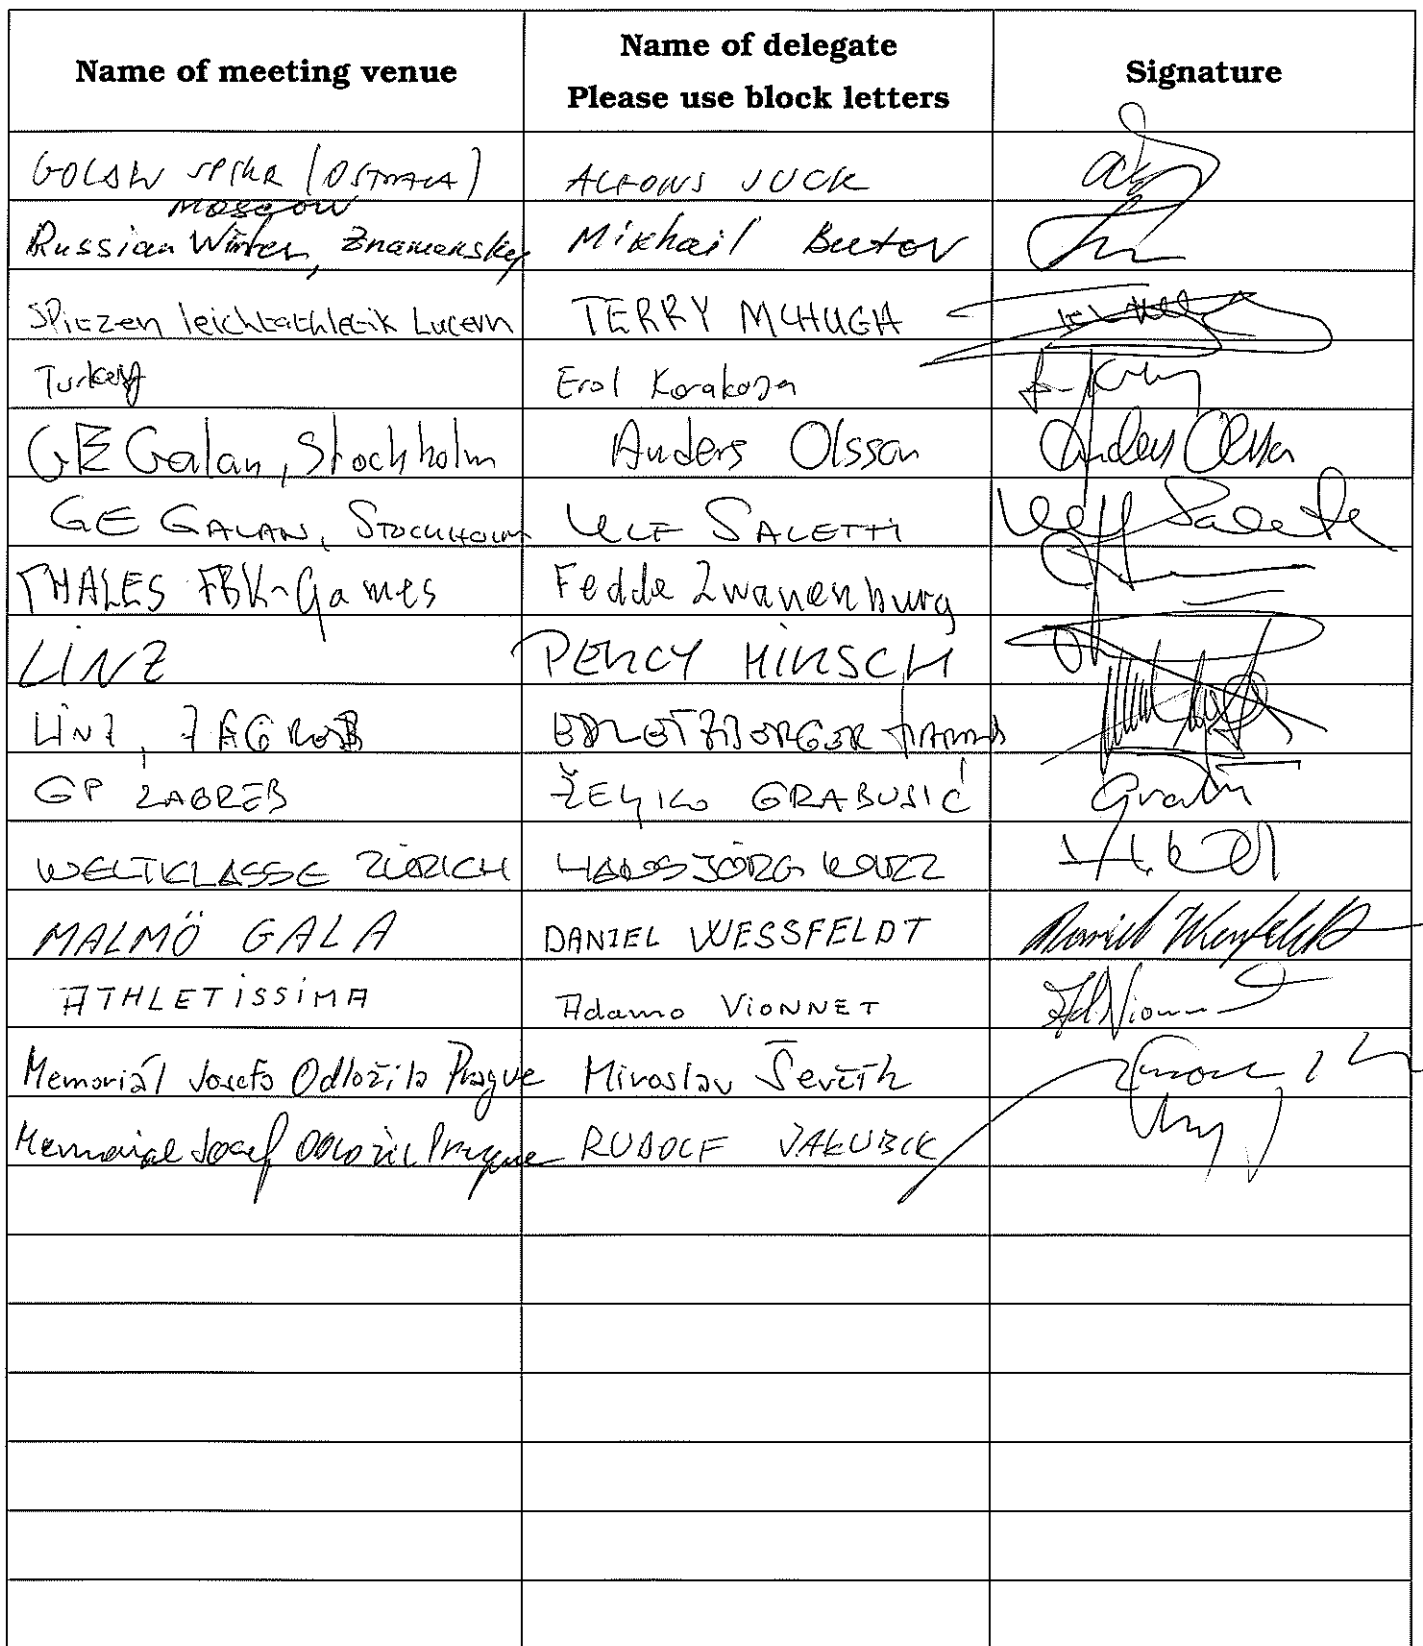 Name of meeting venue Name of delegate Signature
Please use block letters
GOLDEN SPIKE (OSTRAVA) ALFONS JUCK
Moscow
Russian Winter, Znamensky Mikhail Butov
SPitzen leichtathletik Lucern TERRY MCHUGH
Turkey Erol Korakoza
GE Galan, Stockholm Anders Olsson Anders Olsson
GE GALAN, STOCKHOLM ULF SALETTI Ulf Saletti
THALES FBK-Games Fedde Zwanenburg
LINZ PERCY HIRSCH
LINZ, ZAGREB
GP ZAGREB ŽELJKO GRABUSIĆ
WELTKLASSE ZÜRICH HANSJÖRG WIRZ
MALMÖ GALA DANIEL WESSFELDT Daniel Wessfeldt
ATHLETISSIMA Adamo VIONNET Ad. Vionnet
Memoriál Josefa Odložila Prague Miroslav Ševčík
Memorial Josef Odložil Prague RUDOLF JAKUBÍK